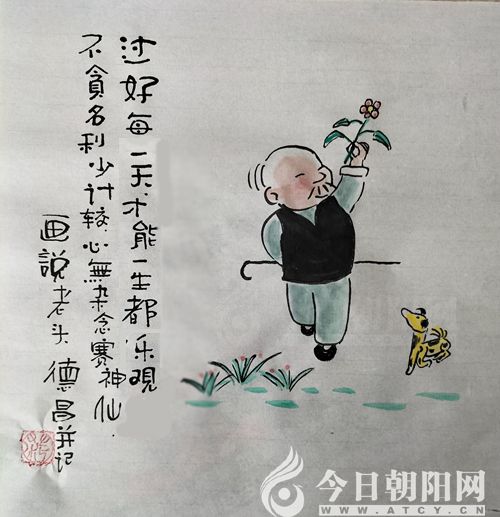 过好每一天.才能一生都乐观
不貪名利少计较.心無杂念赛神仙.
画説老头 德昌并记
今日朝阳网
WWW.ATCY.CN.COM